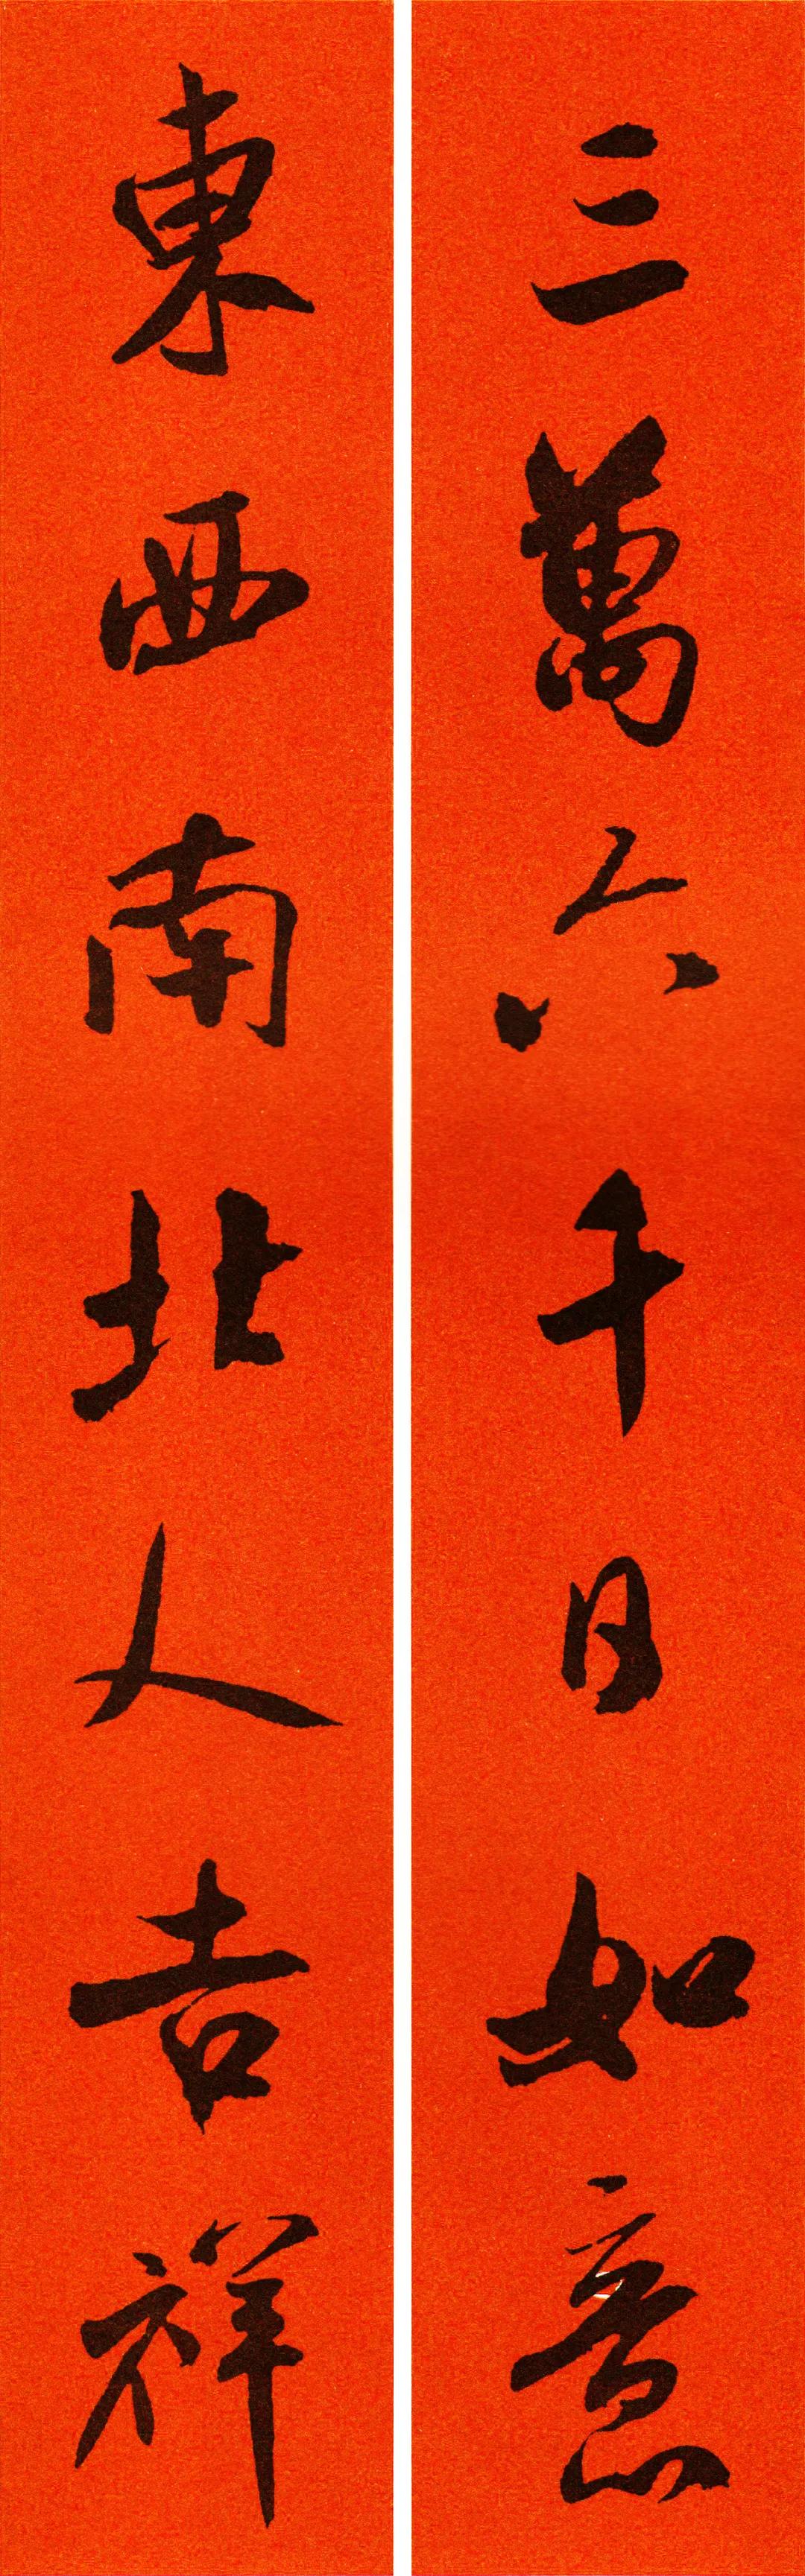 三萬六千日如意
東西南北人吉祥